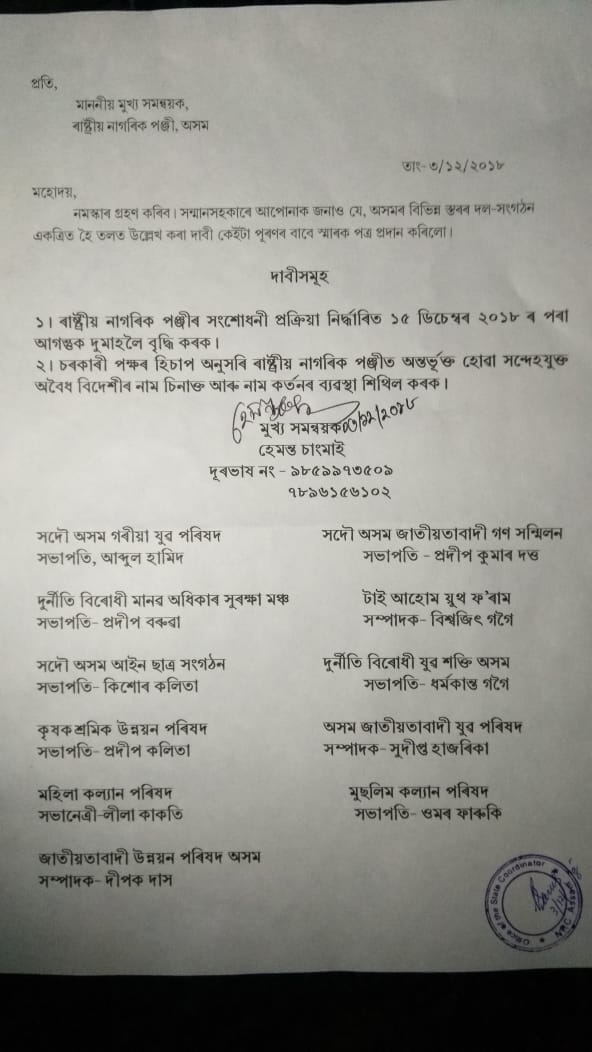 প্ৰতি,
মাননীয় মুখ্য সমন্বয়ক,
ৰাষ্ট্ৰীয় নাগৰিক পঞ্জী, অসম
তাং- ৩/১২/২০১৮
মহোদয়,
নমস্কাৰ গ্ৰহণ কৰিব। সন্মানসহকাৰে আপোনাক জনাও যে, অসমৰ বিভিন্ন স্তৰৰ দল-সংগঠন
একত্ৰিত হৈ তলত উল্লেখ কৰা দাবী কেইটা পূৰণৰ বাবে স্মাৰক পত্ৰ প্ৰদান কৰিলো।
দাবীসমূহ
১। ৰাষ্ট্ৰীয় নাগৰিক পঞ্জীৰ সংশোধনী প্ৰক্ৰিয়া নিৰ্দ্ধাৰিত ১৫ ডিচেম্বৰ ২০১৮ ৰ পৰা
আগন্তুক দুমাহলৈ বৃদ্ধি কৰক।
২। চৰকাৰী পক্ষৰ হিচাপ অনুসৰি ৰাষ্ট্ৰীয় নাগৰিক পঞ্জীত অন্তৰ্ভূক্ত হোৱা সন্দেহযুক্ত
অবৈধ বিদেশীৰ নাম চিনাক্ত আৰু নাম কৰ্তনৰ ব্যৱস্থা শিথিল কৰক।
০৩/১২/২০১৮
মুখ্য সমন্বয়ক
হেমন্ত চাংমাই
দূৰভাষ নং - ৯৮৫৯৯৭৩৫০৯
৭৮৯৬১৫৬১০২
সদৌ অসম গৰীয়া যুৱ পৰিষদ
সভাপতি, আব্দুল হামিদ
সদৌ অসম জাতীয়তাবাদী গণ সন্মিলন
সভাপতি - প্ৰদীপ কুমাৰ দত্ত
দুৰ্নীতি বিৰোধী মানৱ অধিকাৰ সুৰক্ষা মঞ্চ
সভাপতি- প্ৰদীপ বৰুৱা
টাই আহোম য়ুথ ফ'ৰাম
সম্পাদক- বিশ্বজিৎ গগৈ
সদৌ অসম আইন ছাত্ৰ সংগঠন
সভাপতি- কিশোৰ কলিতা
দুৰ্নীতি বিৰোধী যুৱ শক্তি অসম
সভাপতি- ধৰ্মকান্ত গগৈ
কৃষক শ্ৰমিক উন্নয়ন পৰিষদ
সভাপতি- প্ৰদীপ কলিতা
অসম জাতীয়তাবাদী যুৱ পৰিষদ
সম্পাদক- সুদীপ্ত হাজৰিকা
মহিলা কল্যান পৰিষদ
সভানেত্ৰী-লীলা কাকতি
মুছলিম কল্যান পৰিষদ
সভাপতি- ওমৰ ফাৰুকি
জাতীয়তাবাদী উন্নয়ন পৰিষদ অসম
সম্পাদক- দীপক দাস
Office of the State Coordinator
NRC Assam